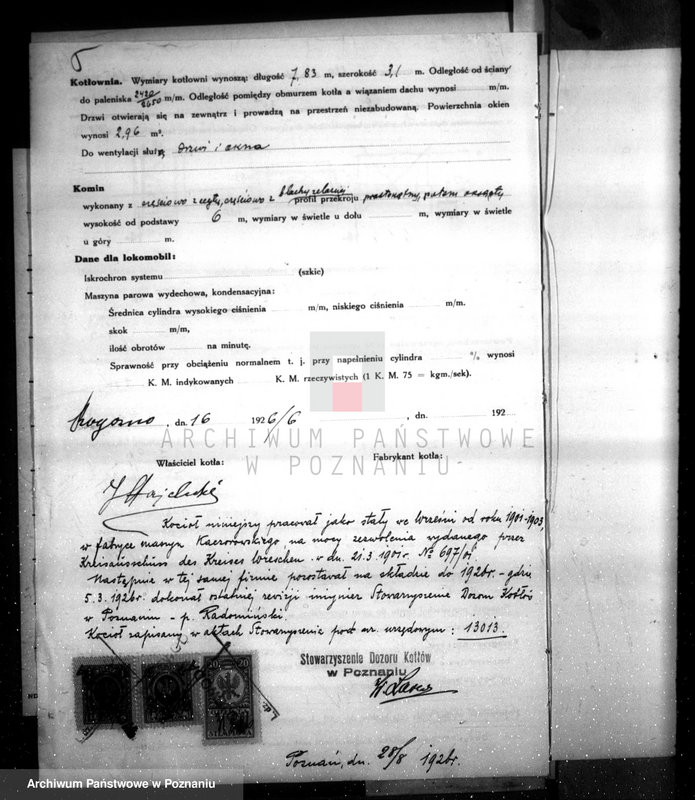 Kotłownia. Wymiary kotłowni wynoszą: długość 7,83 m, szerokość 3,1 m. Odległość od ściany
do paleniska 2420/2650 m/m. Odległość pomiędzy obmurzem kotła a wiązaniem dachu wynosi m/m.
Drzwi otwierają się na zewnątrz i prowadzą na przestrzeń niezabudowaną. Powierzchnia okien
wynosi 2,96 m².
Do wentylacji służą drzwi i okna
Komin
wykonany z częściowo z cegły, częściowo z blachy żelaznej profil przekroju prostokątny, potem okrągły
wysokość od podstawy 6 m, wymiary w świetle u dołu m, wymiary w świetle
u góry m.
Dane dla lokomobil:
Iskrochron systemu (szkic)
Maszyna parowa wydechowa, kondensacyjna:
Średnica cylindra wysokiego ciśnienia m/m, niskiego ciśnienia m/m.
skok m/m,
ilość obrotów na minutę.
Sprawność przy obciążeniu normalnem t. j. przy napełnieniu cylindra % wynosi
K. M. indykowanych K. M. rzeczywistych (1 K. M. 75 = kgm./sek).
Rogoźno, dn. 16 1926/6 , dn. 192
ARCHIWUM PAŃSTWOWE
W POZNANIU
Właściciel kotła: Fabrykant kotła:
Kocioł niniejszy pracował jako stały we Wrześni od roku 1901-1903,
w fabryce maszyn Kaczorowskiego na mocy zezwolenia wydanego przez
Kreisausschuss des Kreises Wreschen w dn. 21.3.1901r. No 697/01
Następnie w tej samej firmie pozostawał na składzie do 1926r. - gdzie
5.3.1926r. dokonał ostatniej rewizji inżynier Stowarzyszenia Dozoru Kotłów
w Poznaniu - p. Radomiński.
Kocioł zapisany w aktach Stowarzyszenia pod nr. urzędowym: 13013.
Stowarzyszenie Dozoru Kotłów
w Poznaniu
20 20
Poznań, dn. 28/8 1926r.
Archiwum Państwowe w Poznaniu